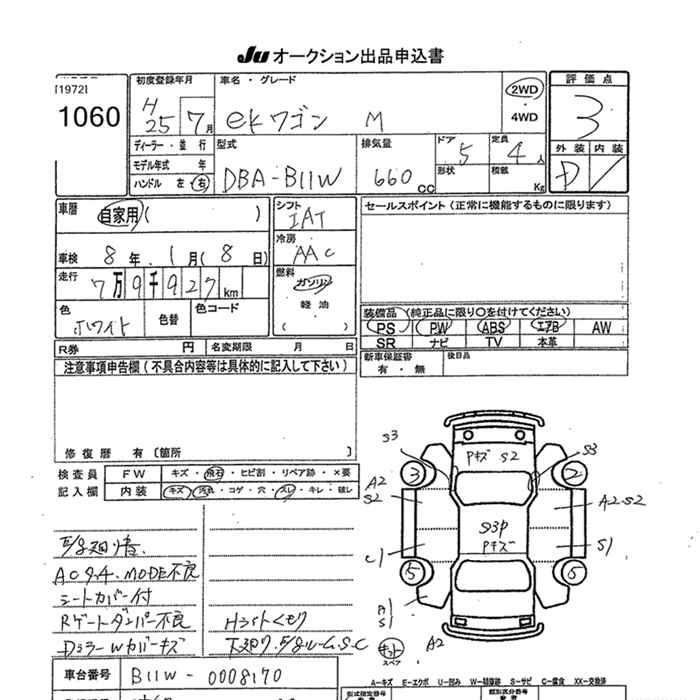 JU オークション出品申込書
[1972]
1060
初度登録年月
H25 7月
車名・グレード
ekワゴン M
2WD
・
4WD
評価点
3
ディーラー・並行
モデル年式 年
ハンドル 左 右
型式
DBA-B11W
排気量
660 cc
ドア
5
定員
4人
形状
積載
Kg
外装 内装
D
車歴
自家用( )
シフト
IAT
セールスポイント(正常に機能するものに限ります)
車検 8年 1月(8日)
冷房
AAC
走行
7万9千927km
燃料
ガソリン
軽油
( )
色
ホワイト
色替
色コード
装備品 (純正品に限り○を付けてください)
PS PW ABS エアB AW
SR ナビ TV 本革
R券 円
名変期限 月 日
新車保証書
有・無
後日品
注意事項申告欄(不具合内容等は具体的に記入して下さい)
修復歴 有〔箇所 〕
検査員
記入欄
FW キズ・飛石・ヒビ割・リペア跡・×要
内装 キズ・汚れ・コゲ・穴・スレ・キレ・破レ
AC タッチ. MODE不良
シートカバー付
Rゲートダンパー不良
DミラーWカバーキズ
Hライトくもり
S3
Pキズ S2
S3
2
3
A2
S2
A2.S2
S3P
Pキズ
C1
S1
5
5
A1
S1
キット
スペア
A2
車台番号 B11W-0008170
A-キズ E-エクボ U-凹み W-補修跡 S-サビ C-腐食 XX-交換済
型式指定番号
類別区分番号